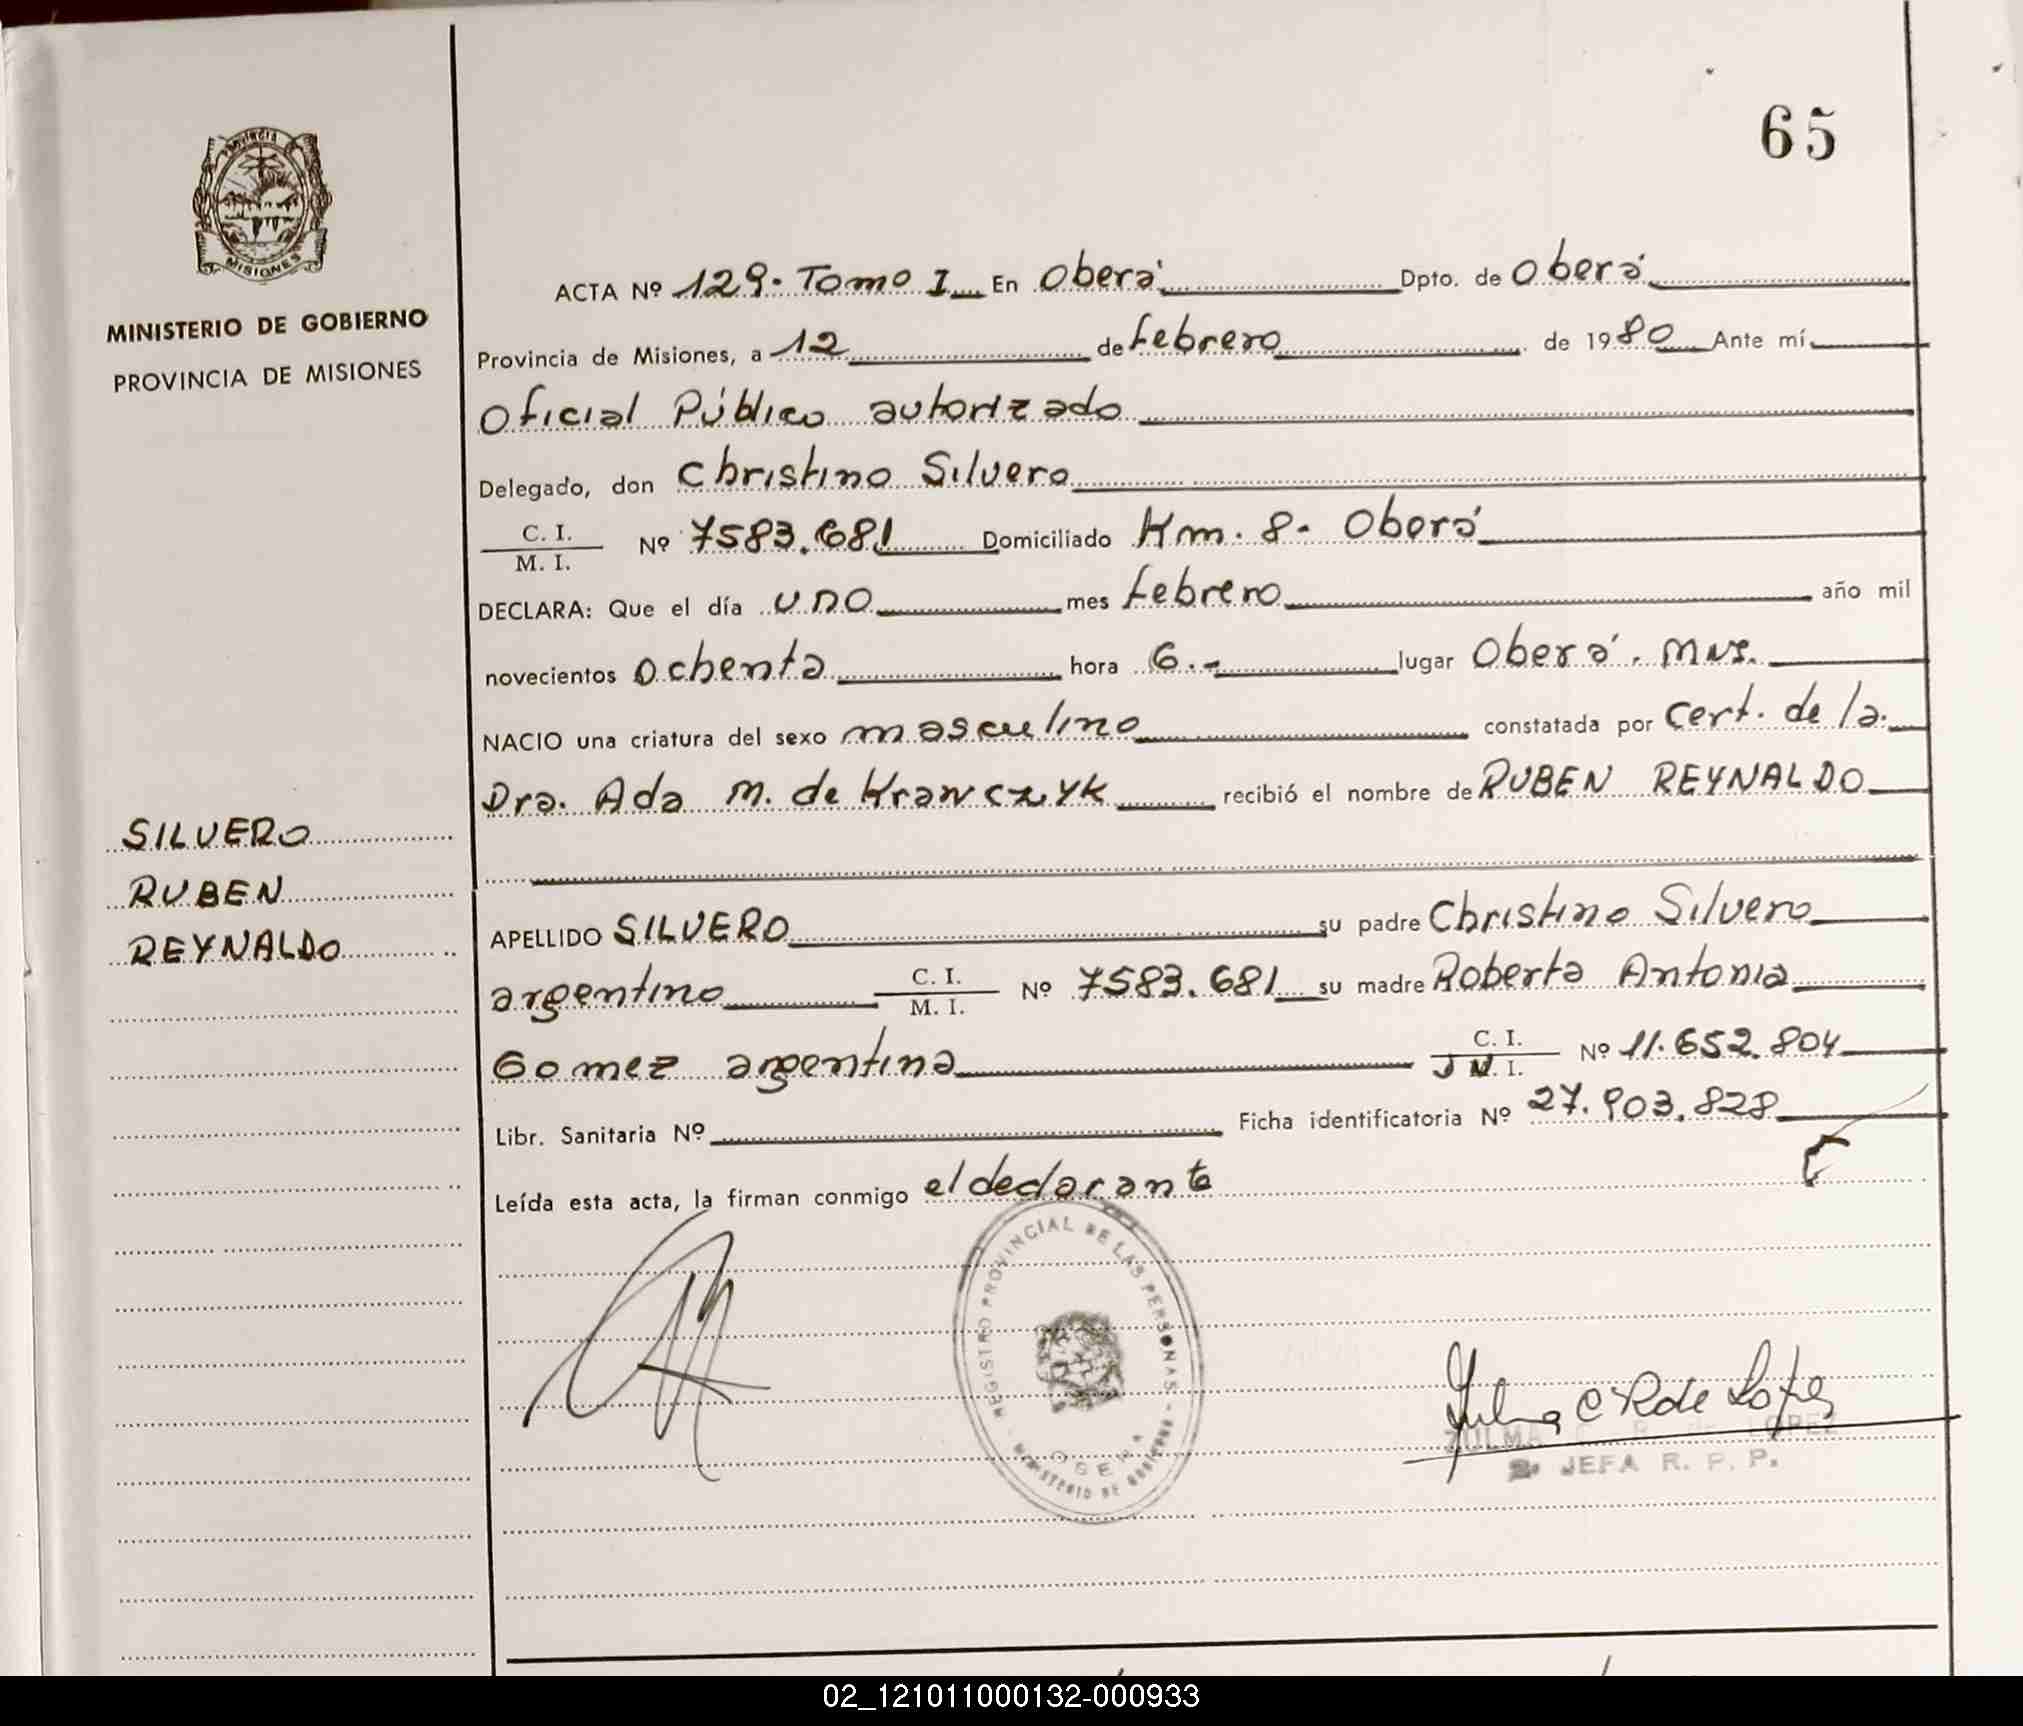 65
Provincia
MISIONES
MINISTERIO DE GOBIERNO
PROVINCIA DE MISIONES
SILVERO
RUBEN
REYNALDO
ACTA Nº 129. Tomo I En Oberá Dpto. de Oberá
Provincia de Misiones, a 12 de febrero de 1980 Ante mí
Oficial Público autorizado
Delegado, don Christino Silvero
C. I.
M. I. Nº 7583.681 Domiciliado Km. 8- Oberá
DECLARA: Que el día uno mes febrero año mil
novecientos ochenta hora 6.- lugar Oberá. Mns.
NACIO una criatura del sexo masculino constatada por Cert. de la
Dra. Ada M. de Krawczyk recibió el nombre de RUBEN REYNALDO
APELLIDO SILVERO su padre Christino Silvero
argentino C. I.
M. I. Nº 7583.681 su madre Roberta Antonia
Gomez argentina C. I.
Nº 11.652.804
Libr. Sanitaria Nº Ficha identificatoria Nº 27.903.828
Leída esta acta, la firman conmigo el declarante
REGISTRO PROVINCIAL DE LAS PERSONAS
OBERA
MINISTERIO DE GOBIERNO
Zulma C R de López
ZULMA C. R. de LOPEZ
JEFA R. P. P.
02_121011000132-000933